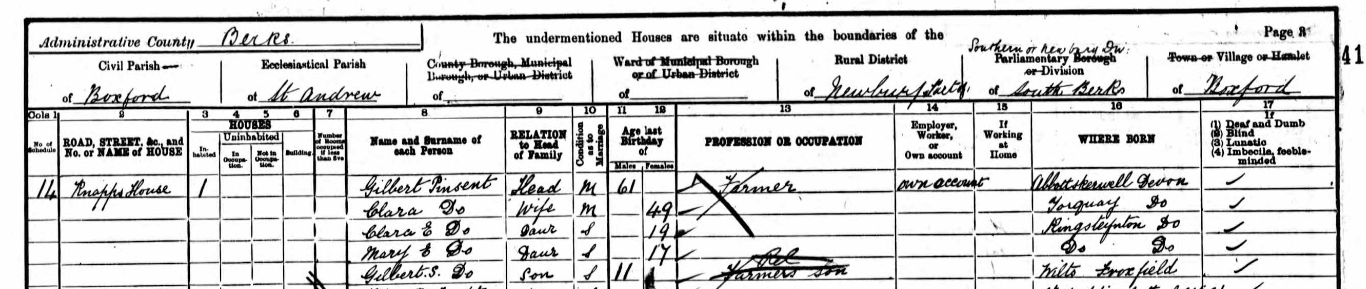 Administrative County Berks. The undermentioned Houses are situate within the boundaries of the Page 2
41
Southern or Newbury Dn:
Civil Parish Ecclesiastical Parish County Borough, Municipal Borough, or Urban District Ward of Municipal Borough or of Urban District Rural District Parliamentary Borough or Division Town or Village or Hamlet
of Boxford of St Andrew of of of Newbury Part of of South Berks of Boxford
Cols 1 2 3 4 5 6 7 8 9 10 11 12 13 14 15 16 17
No. of Schedule ROAD, STREET, &c., and No. or NAME of HOUSE HOUSES In-habited Uninhabited In Occupa-tion. Not in Occupa-tion. Building. Number of Rooms occupied if less than five Name and Surname of each Person RELATION to Head of Family Condition as to Marriage Age last Birthday of Males Females PROFESSION OR OCCUPATION Employer, Worker, or Own account If Working at Home WHERE BORN If (1) Deaf and Dumb (2) Blind (3) Lunatic (4) Imbecile, feeble-minded
14 Knapps House 1 Gilbert Pinsent Head M 61 Farmer own account Abbottskerwell Devon
Clara Do Wife M 49 Torquay Do
Clara E Do Daur S 19 Kingsteynton Do
Mary E Do Daur S 17 Do Do
Rel
Gilbert. S. Do Son S 11 Farmers son Wilts Froxfield